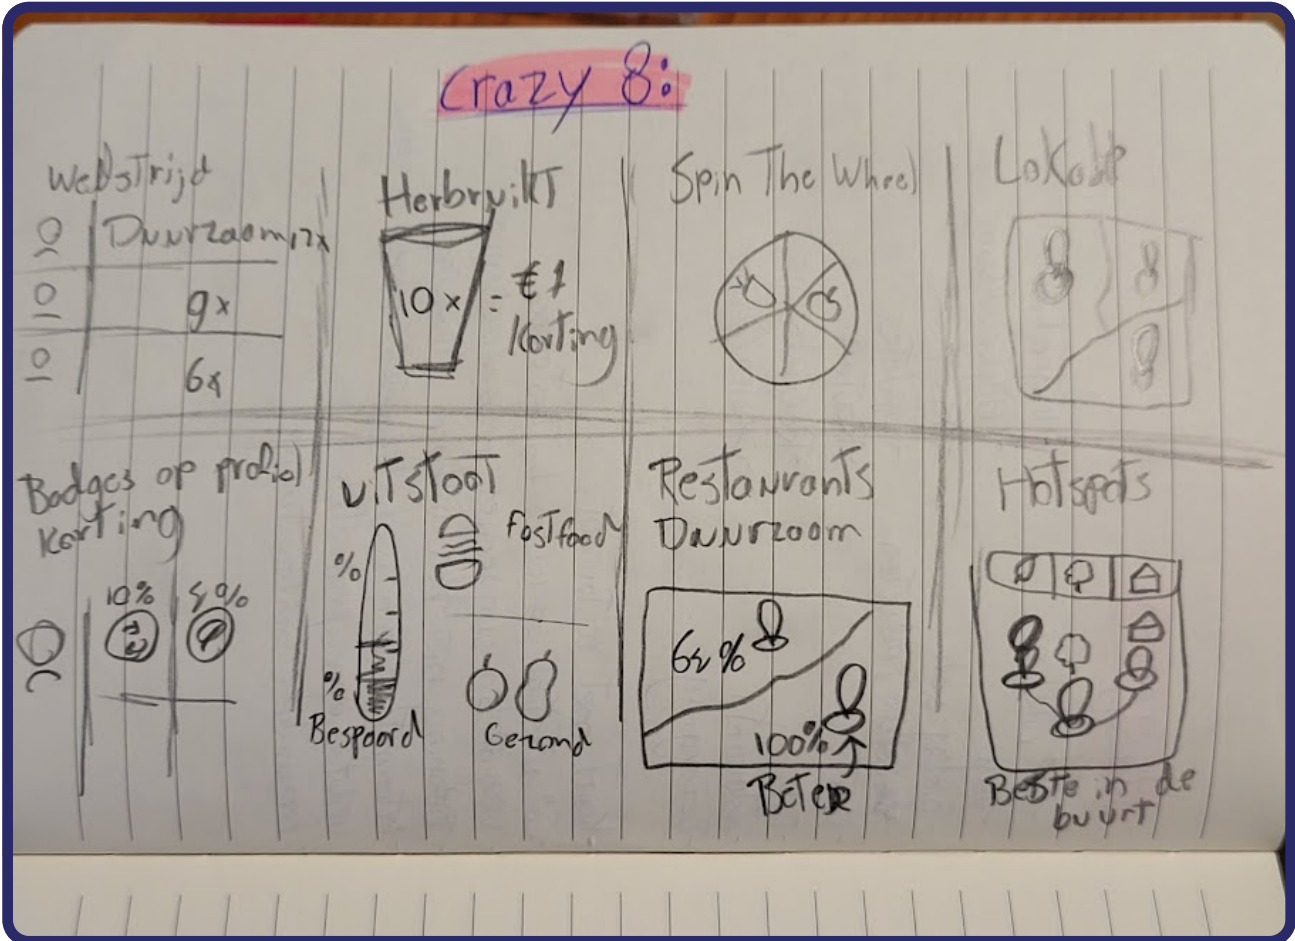 Crazy 8:
WedsTrijd
Duurzaam 12x
9x
6x
HerbruikT
10 x = €1
Korting
Spin The Wheel
Badges op profiel
Korting
10% 5%
UITSTOOT
%
Fastfood
%
Bespaard
Gezond
Restaurants
Duurzaam
65%
100%
Hotspots
Beste in de
buurt